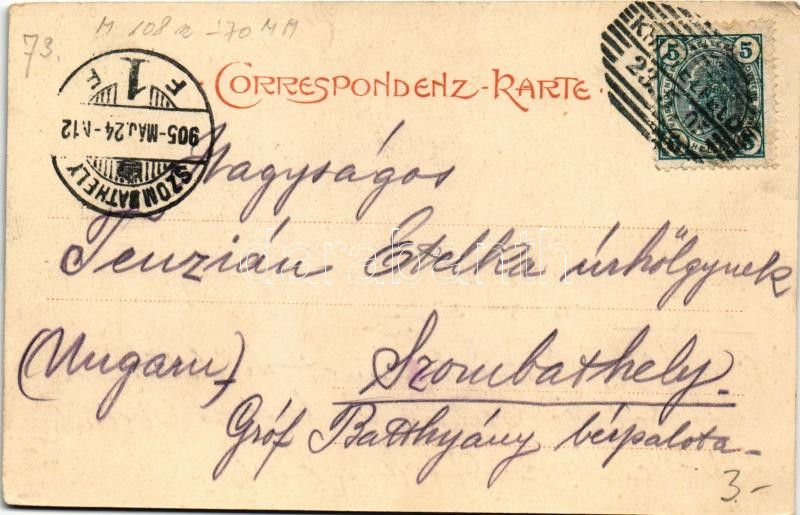 M 108 -70 MM
73.
CORRESPONDENZ-KARTE.
5 5
23.
F 1
905-MÁJ.24-
SZOMBATHELY
Nagyságos
Tenzián Etelka úrhölgynek
darabanth
(Ungarn)
Szombathely.
Gróf Batthyány bérpalota-
3.-